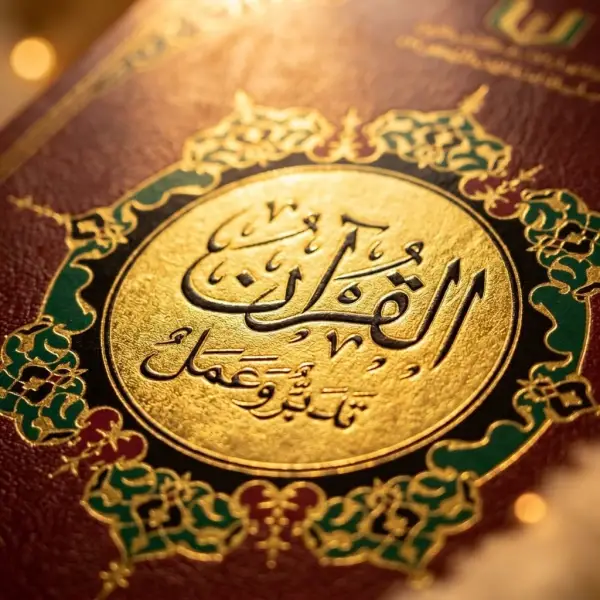 القُرآن
تَدَبُّرٌ وَعَمَلٌ